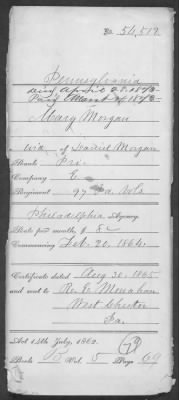 No. 54,519
Pennsylvania
Mary Morgan
wid. of Daniel Morgan
Rank Pri.
Company E
Regiment 97 Pa. Vols
Philadelphia Agency.
Rate per month, $ 8
Commencing Feb. 20, 1864.
Certificate dated Aug 30. 1865
and sent to
West Chester
Pa.
Act 14th July, 1862.
Book B Vol. 5 Page 69